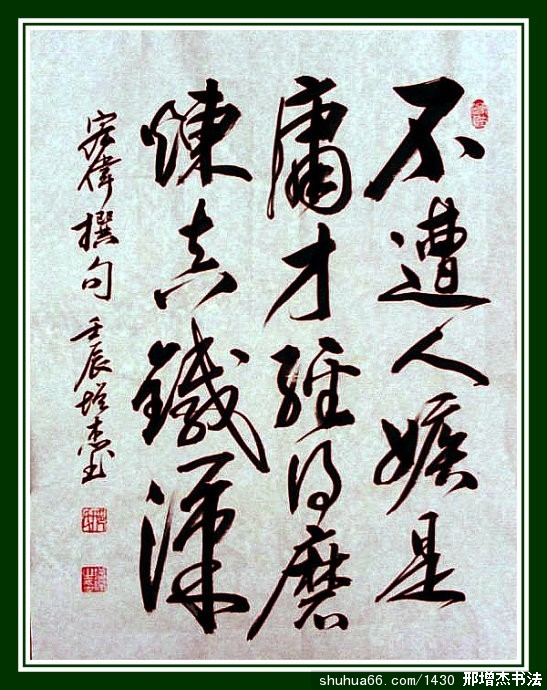 不遭人嫉是
庸才經得磨
煉真鐵漢
宏偉撰句 壬辰增杰书
shuhua66.com/1430 邢增杰书法